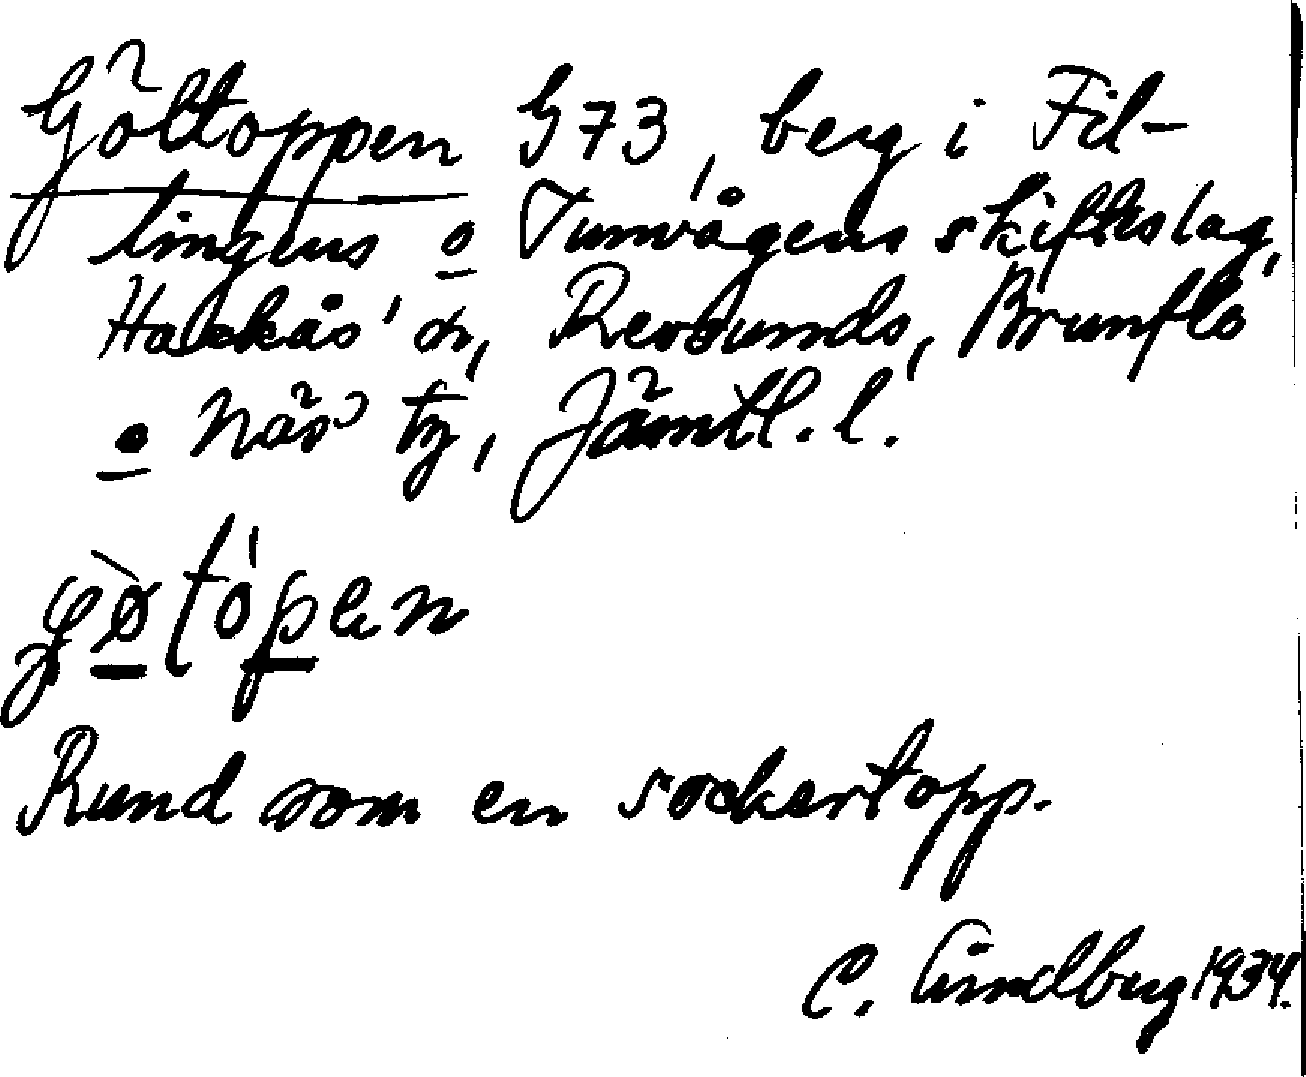 Göltoppen G73, berg i Fil-
lingens o Tunvågens skifteslag,
Hackås' sn, Revsunds, Brunflo
o Näs' tg, Jämtl. l.
Rund som en sockertopp.
C. Lindberg 1934.